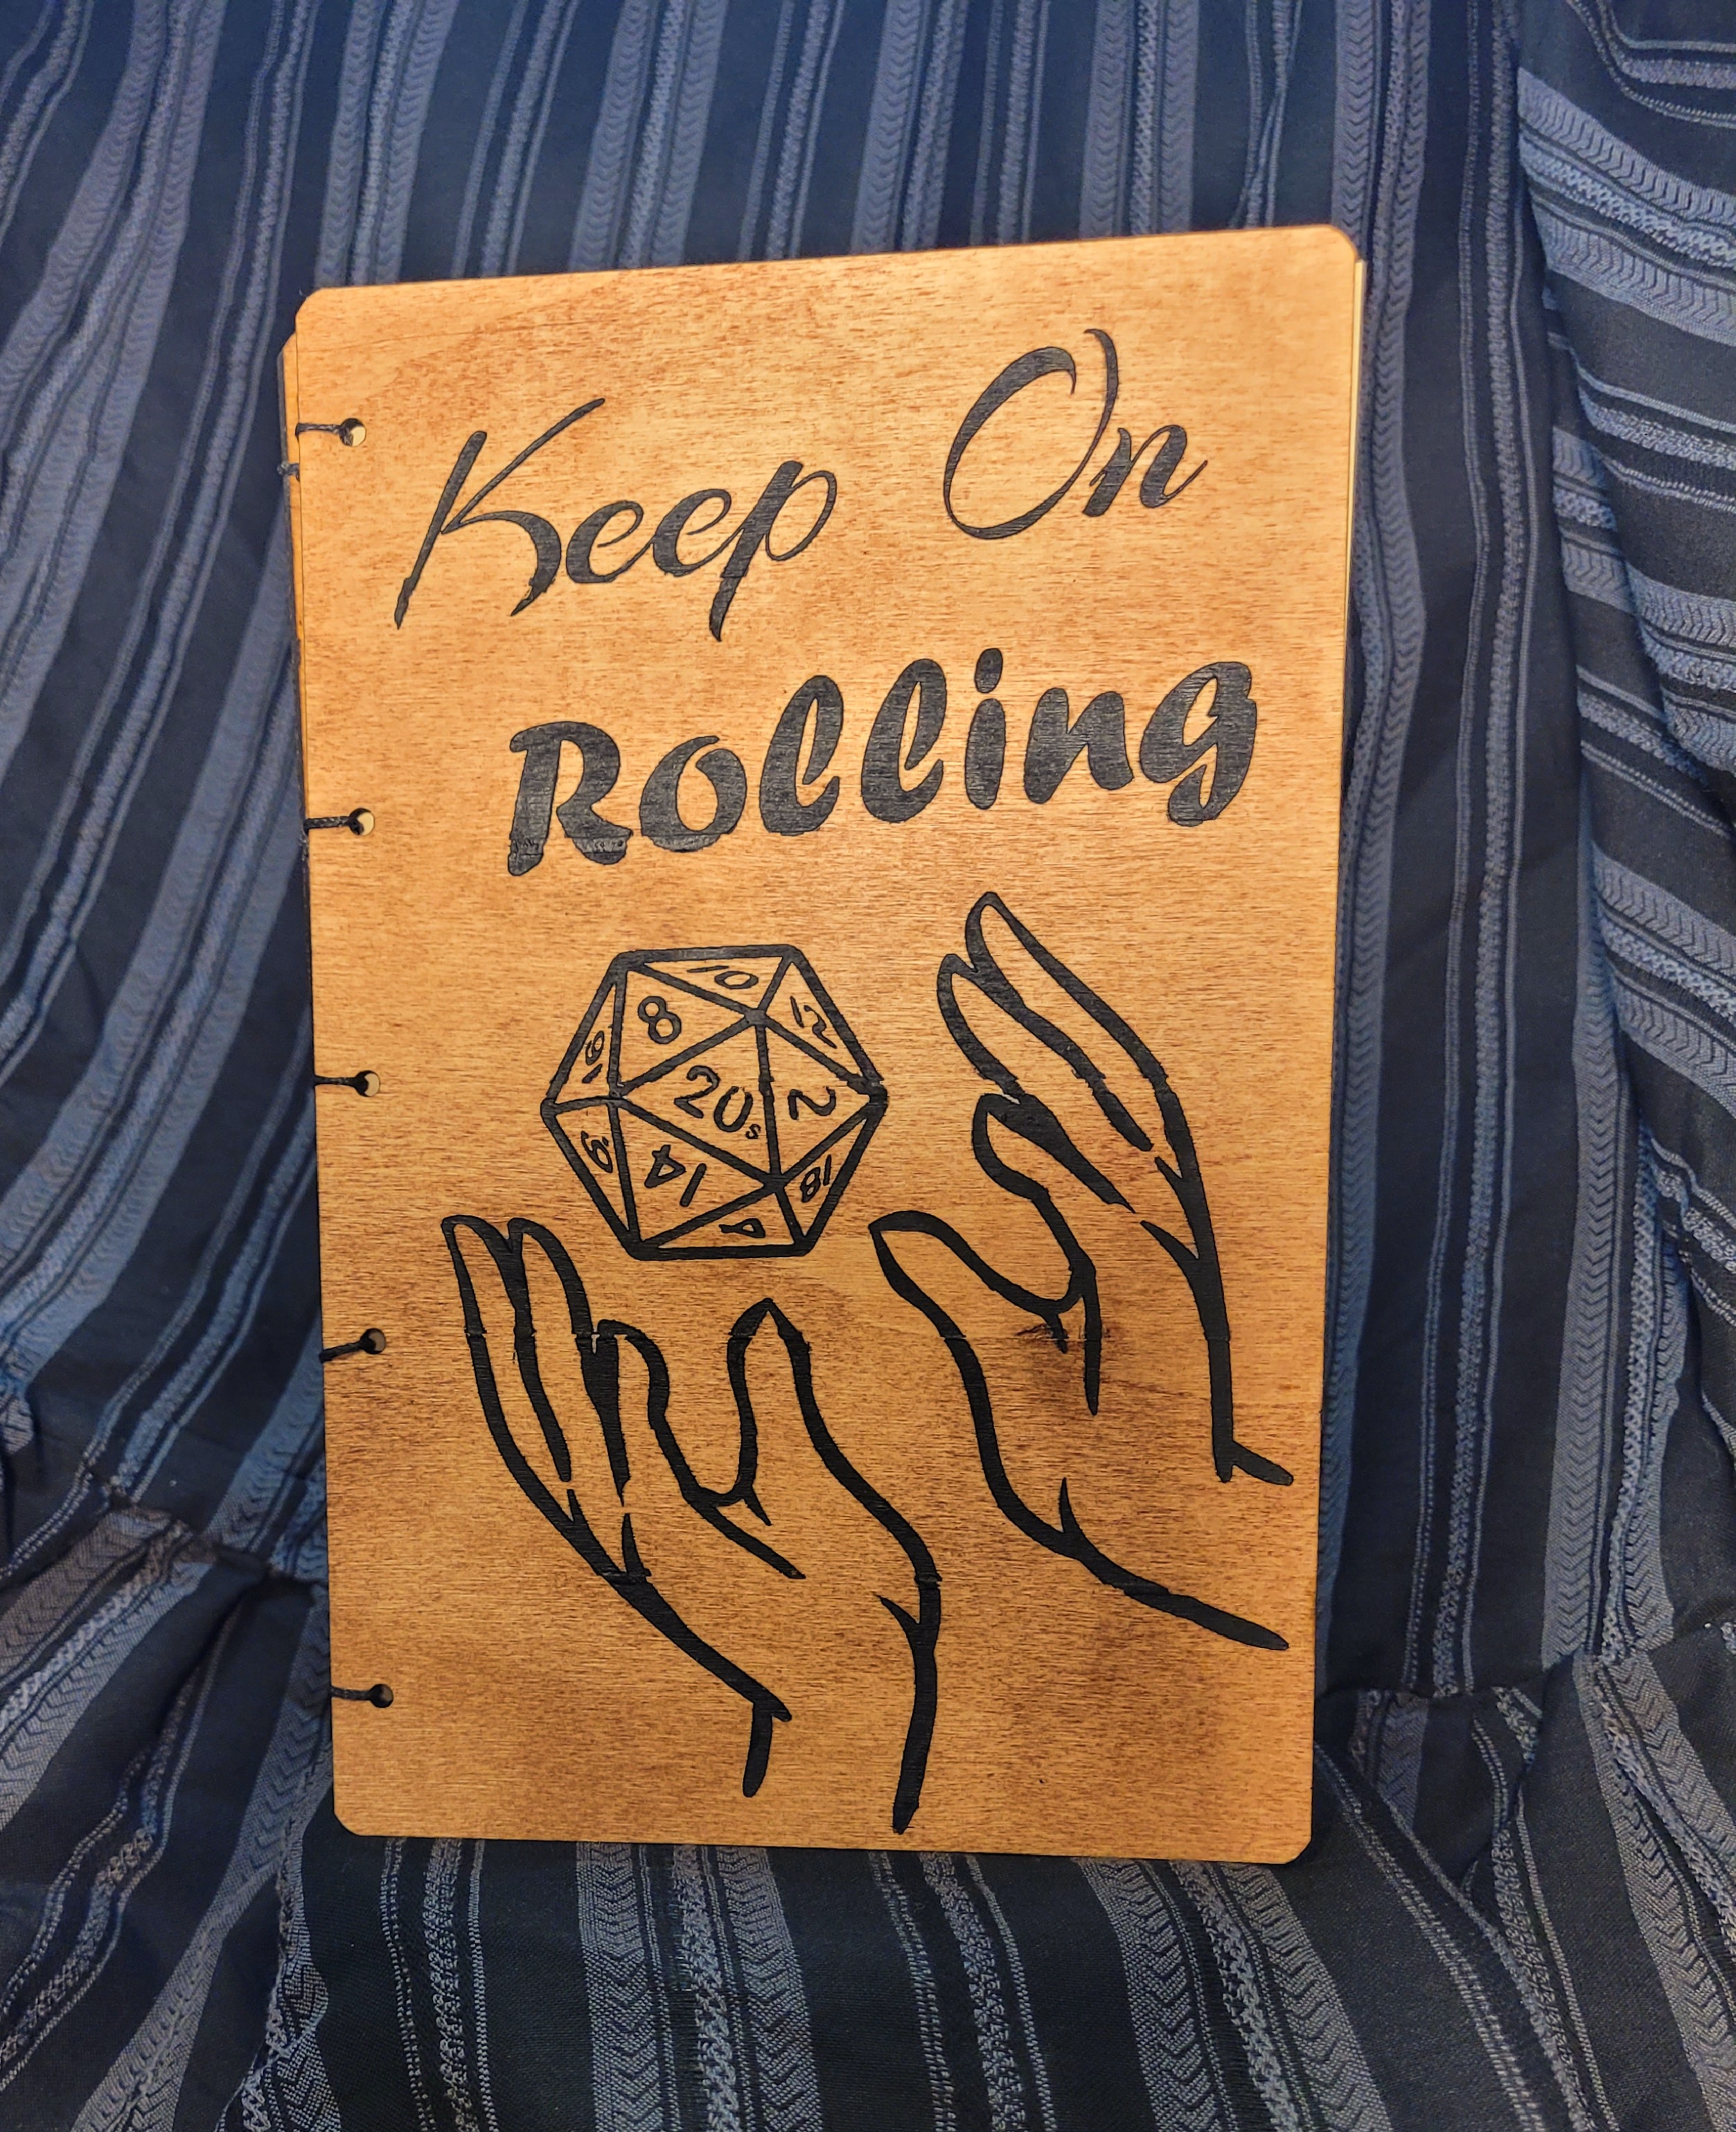 Keep On
Rolling
10
8
12
16
20s
2
14
18
4